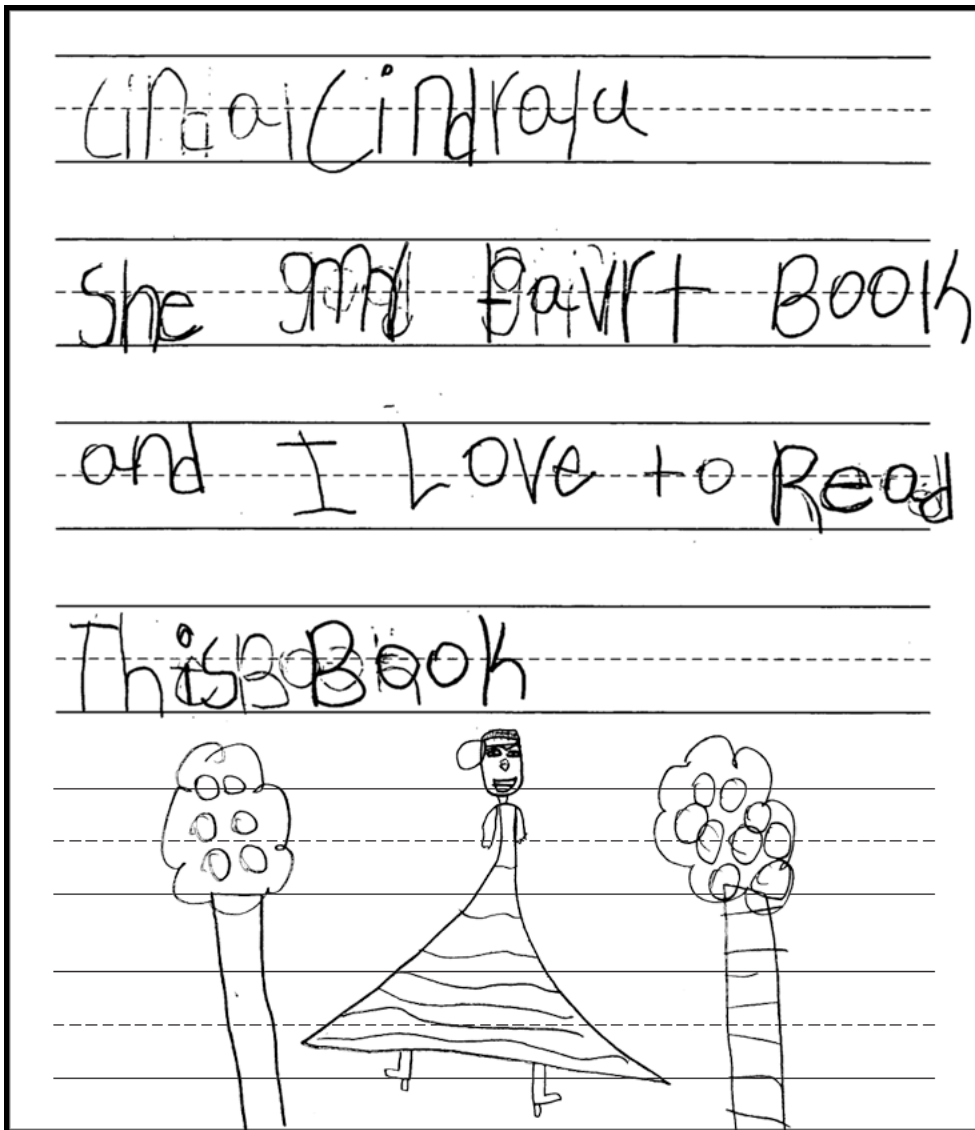 Cindrala
She favrt Book
and I Love to Read
This Book